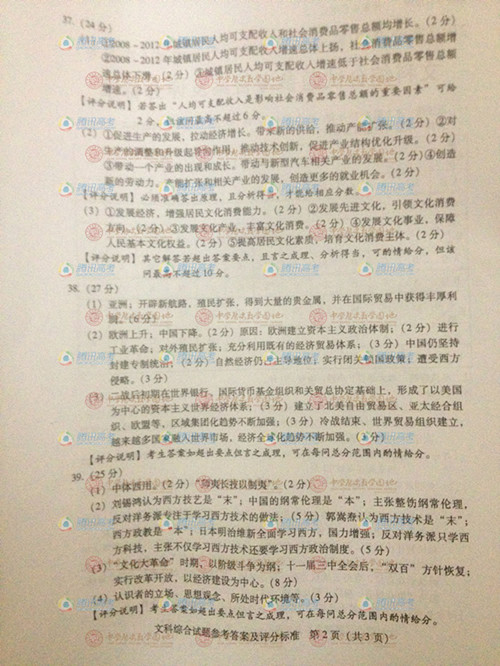 37. (24分)
(1) ①2008－2012年城镇居民人均可支配收入和社会消费品零售总额均增长。(2分)
②2008－2012年城镇居民人均可支配收入增速总体上扬，社会消费品零售总额增
速总体下滑。(2分) ③城镇居民人均可支配收入增速低于社会消费品零售总额
增速。(2分)
【评分说明】若答出“人均可支配收入是影响社会消费品零售总额的重要因素”可给
2分，但该问最高不超过6分。
(2) ①促进生产的发展，拉动经济增长。带来新的供给，推动产能扩张。(2分) ②对
生产的调整和升级起导向作用，推动技术创新，促进产业结构优化升级。(2分)
③带动一个产业的出现和成长。带动与新型汽车相关产业的发展。(2分) ④创造
新的劳动力。产能扩张和相关产业的发展，创造更多的就业机会。(2分)
【评分说明】必须准确答出原理，且分析得当，才能给相应分数。
(3) ①发展经济，增强居民文化消费能力。(2分) ②发展先进文化，引领文化消费
方向。(2分) ③发展文化产业，丰富文化消费。(2分) ④发展文化事业，保障
人民基本文化权益。(2分) ⑤提高居民文化素质，培育文化消费主体。(2分)
【评分说明】其它解答若超出答案要点，且言之成理，分析得当，可酌情给分，但该
问最高不超过10分。
38. (27分)
(1) 亚洲；开辟新航路，殖民扩张，得到大量的贵金属，并在国际贸易中获得丰厚利
润。(6分)
(2) 欧洲上升；中国下降。(2分) 原因：欧洲建立资本主义政治体制；(2分) 进行
工业革命；对外殖民扩张；充分利用既有的经济贸易体系；(3分) 中国仍坚持
封建专制统治；(2分) 自然经济仍占主导地位；实行闭关锁国政策；遭受西方
侵略。(3分)
(3) 二战后初期在世界银行、国际货币基金组织和关贸总协定基础上，形成了以美国
为中心的资本主义世界经济体系；(3分) 建立了北美自由贸易区、亚太经合组
织、欧盟等，区域集团化趋势不断加强；(3分) 冷战结束、世界贸易组织建立，
越来越多国家融入世界市场，经济全球化趋势不断加强。(3分)
【评分说明】考生答案如超出要点但言之成理，可在每问总分范围内酌情给分。
39. (25分)
(1) 中体西用。(2分) “师夷长技以制夷”(2分)
(2) 刘锡鸿认为西方技艺是“末”；中国的纲常伦理是“本”；主张整饬纲常伦理，
反对洋务派专注于学习西方技术的做法；(5分) 郭嵩焘认为西方技术是“末”；
西方政教是“本”；日本明治维新全面学习西方，国力增强；反对洋务派只学西
方科技，主张不仅学习西方技术还要学习西方政治制度。(5分)
(3) “文化大革命”时期，以阶级斗争为纲；十一届三中全会后，“双百”方针恢复；
实行改革开放，以经济建设为中心。(8分)
(4) 认识者的立场、思想观念、所处时代环境等。(3分)
【评分说明】考生答案如超出要点但言之成理，可在每问总分范围内酌情给分。
文科综合试题参考答案及评分标准 第2页（共3页）